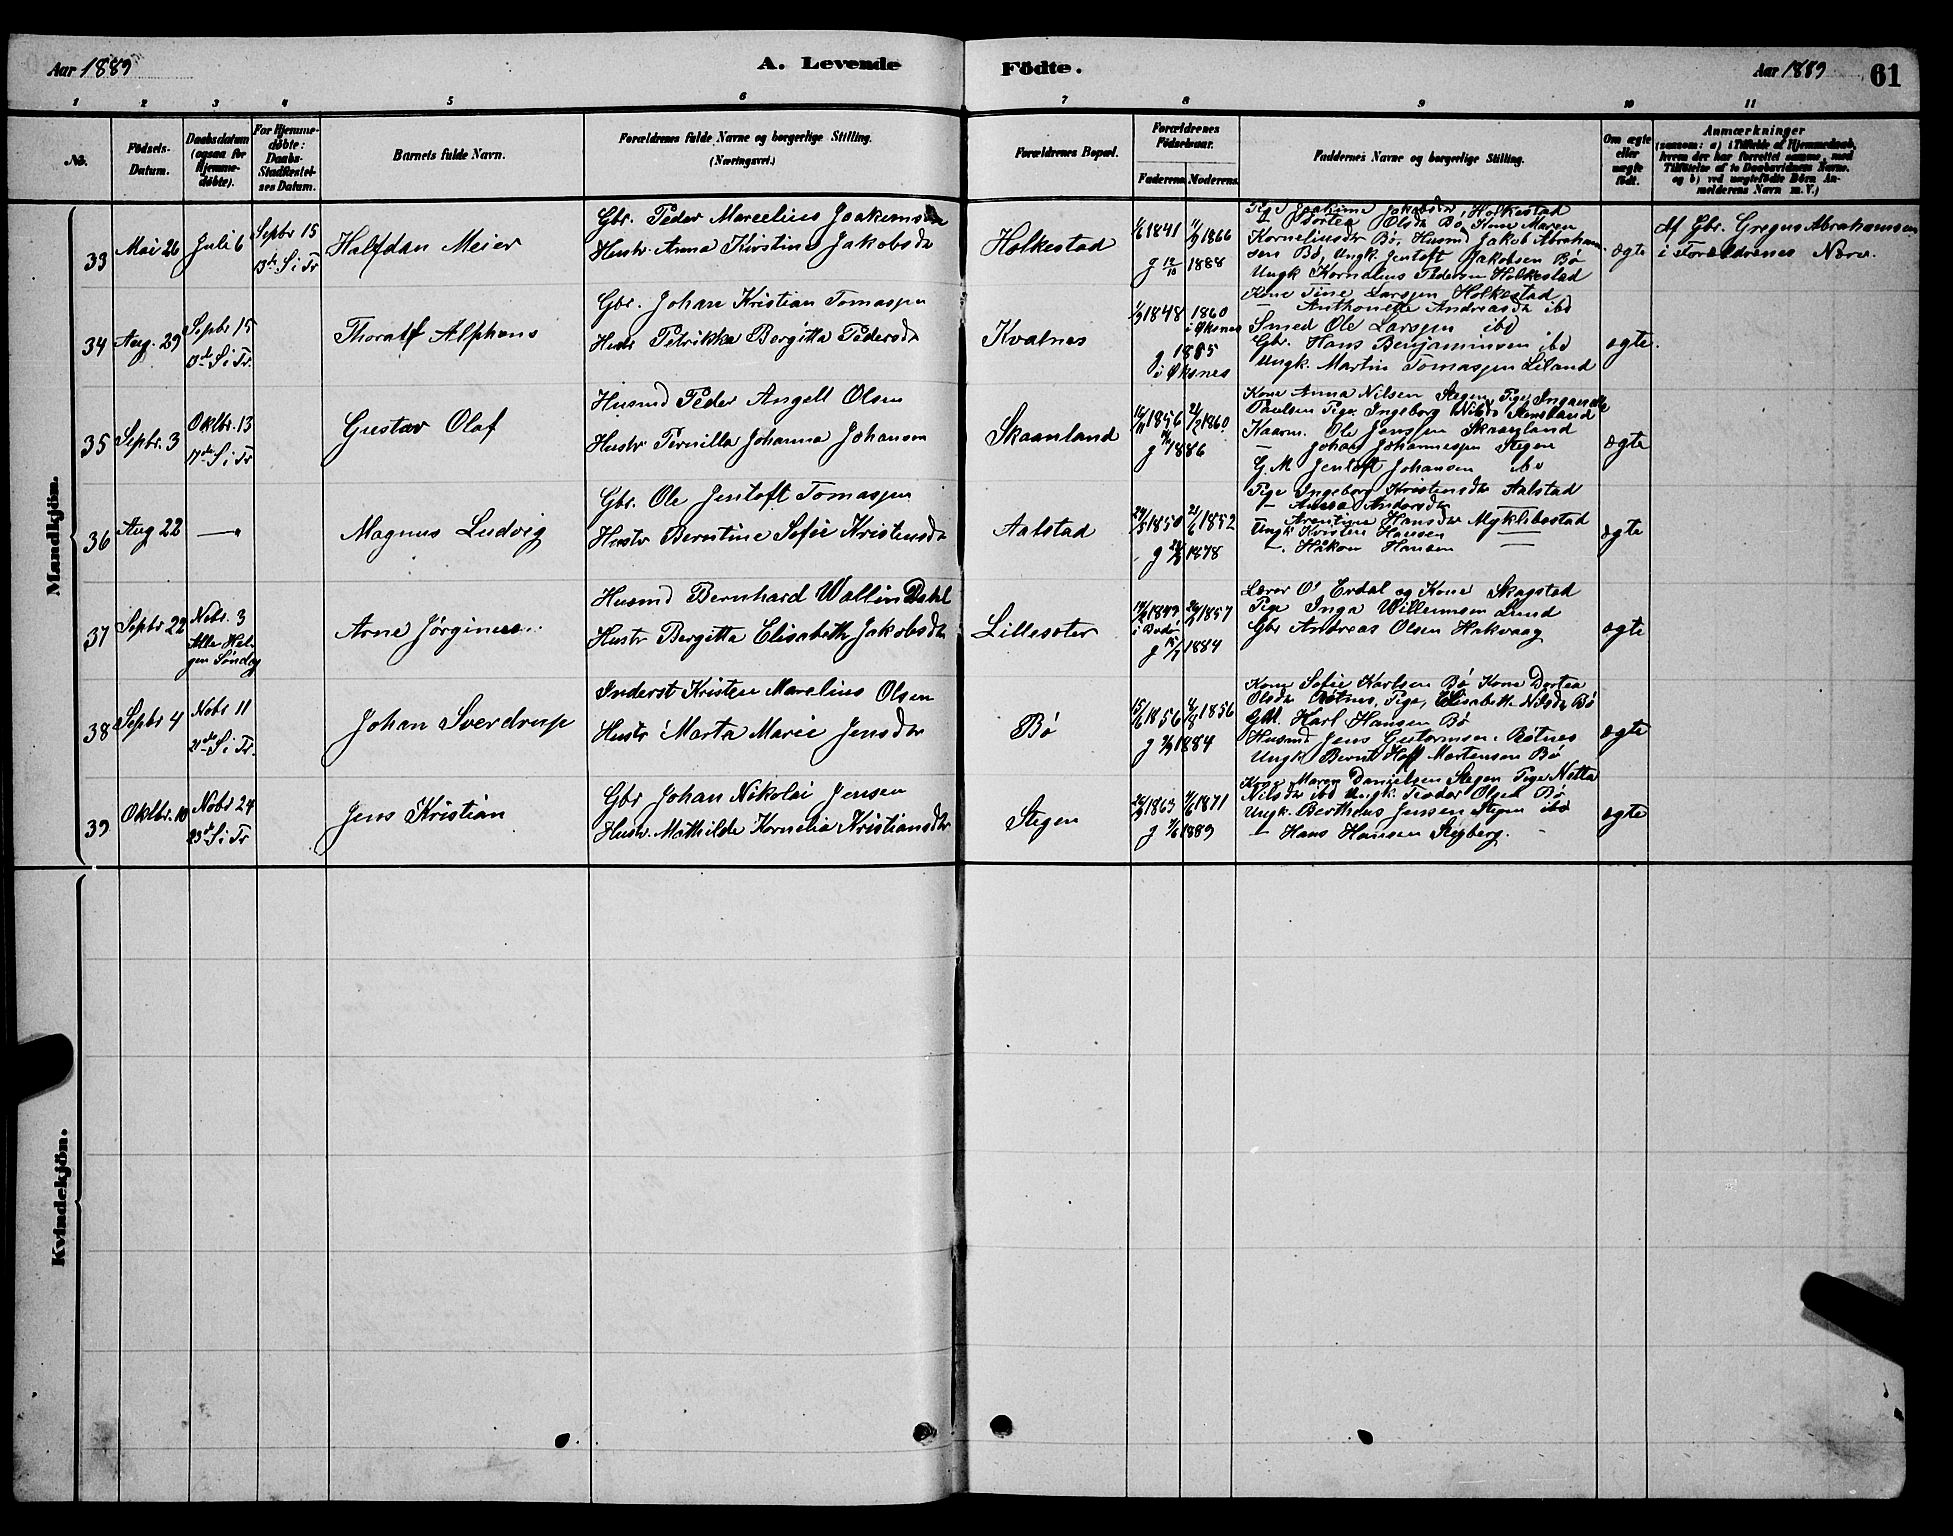 Aar 1889
A. Levende
Födte.
Aar 1889
61
1 2 3 4 5 6 7 8 9 10 11
No.
Födsels-Datum.
Daabsdatum (ogsaa for Hjemme-døbte).
For Hjemme-døbte: Daabs-Stadfæstel-ses Datum.
Barnets fulde Navn.
Forældrenes fulde Navne og borgerlige Stilling.
(Næringsvei.)
Forældrenes Bopæl.
Forældrenes Födselsaar.
Faderens. Moderens.
Faddernes Navne og borgerlige Stilling.
Om ægte eller uægte født.
Anmærkninger
(saasom: a) i Tilfælde af Hjemmedaab, hvem der har forrettet samme, med Tilføielse af to Daabsvidners Navne. og b) ved uægtefødte Børn Anmelderens Navn m. V.)
Mandkjön.
33 Mai 26 Juli 6 Septbr 15
13de S i Tr
Halfdan Meier
Gbr. Peder Marcelius Joakimsen
Hustr. Anna Kirstine Jakobsdr
Holkestad
1841 1866
g 12/10 1888
Pige Joakime Jakobsdr, Holkestad
— Dortea Olsdr Bø, Kone Maren
Korneliusdr Bø, Husmd Jakob Abraham
sen Bø, Ungk. Jentoft Jakobsen Bø
Ungk Kornelius Pedersen Holkestad
ægte
Af Gbr. Gregus Abrahamsen
i Foreldrenes Nærv.
34 Aug. 29 Septbr 15
13de S i Tr.
Thoralf Alphons
Gbr. Johan Kristian Tomassen
Hustr Petrikka Borgitta Pedersdr
Kvalnes
1848 1860
i Øksnes
g 1885
i Øksnes
Kone Tine Larssen Holkestad
— Anthonette Andreasdr ibd
Smed Ole Larssen ibd
Gbr. Hans Benjaminsen ibd
Ungk. Martin Tomassen Liland
ægte.
35 Septbr. 3 Oktbr. 13
17de S i Tr
Gustav Olaf
Husmd Peder Angell Olsen
Hustr Pernilla Johanna Johansen
Skaanland
1856 1860
g 1886
Kone Anna Nilsen Stegen, Pige
Paulsen Pige Ingeborg Nilsdr
Kaarm. Ole Jenssen Skaanland
— Johan Johannessen Stegen
G.M Jentoft Johansen ibd
ægte
36 Aug 22 —
Magnus Ludvig
Gbr. Ole Jentoft Tomassen
Hustr Berntine Sofie Kristensdr
Aalstad
1850 1852
g 1878
Pige Ingeborg Kristensdr Aalstad
— Andersdr —
— Arentine Hansdr Myklebostad
Ungk Kristen Hansen —
—. Håkon Hansen —
ægte
37 Septbr 22 Nobr. 3
Alle Hel-
gen Søndag
Arne Jørginus
Husmd Bernhard Wallin Dahl
Hustr Bergitta Elisabeth Jakobsdr
Lilleseter
1849 1857
i Bodø
g 1884
Lærer O. Erdal og Kone Skagstad
Pige Inga Willumsen Lund
Gbr Andreas Olsen Hakvaag
ægte
38 Septbr 4 Nobr 11
21de S i Tr.
Johan Sverdrup
Inderst Kristen Marelius Olsen
Hustr Marta Marie Jensdr
Bø
1856 1856
g 1884
Kone Sofie Karlsen Bø Kone Dortea
Olsdr Botnes, Pige, Elisabeth Nilsdr Bø
GM. Karl Hansen Bø
Husmd Jens Guttormsen Botnes
Ungk Bernt Hoff Mortensen Bø
ægte
39 Oktbr. 10 Nobr 24
23de S i Tr
Jens Kristian
Gbr Johan Nikolai Jensen
Hustr. Mathilde Kornelia Kristiansdr
Stegen
1863 1871
g 1889
Kone Maren Danielsen Stegen Pige Netta
Nilsdr ibd Ungk. Teodor Olsen Bø
Ungk. Bertheus Jenssen Stegen ibd
— Hans Hansen Stegberg.
ægte
Kvindekjön.